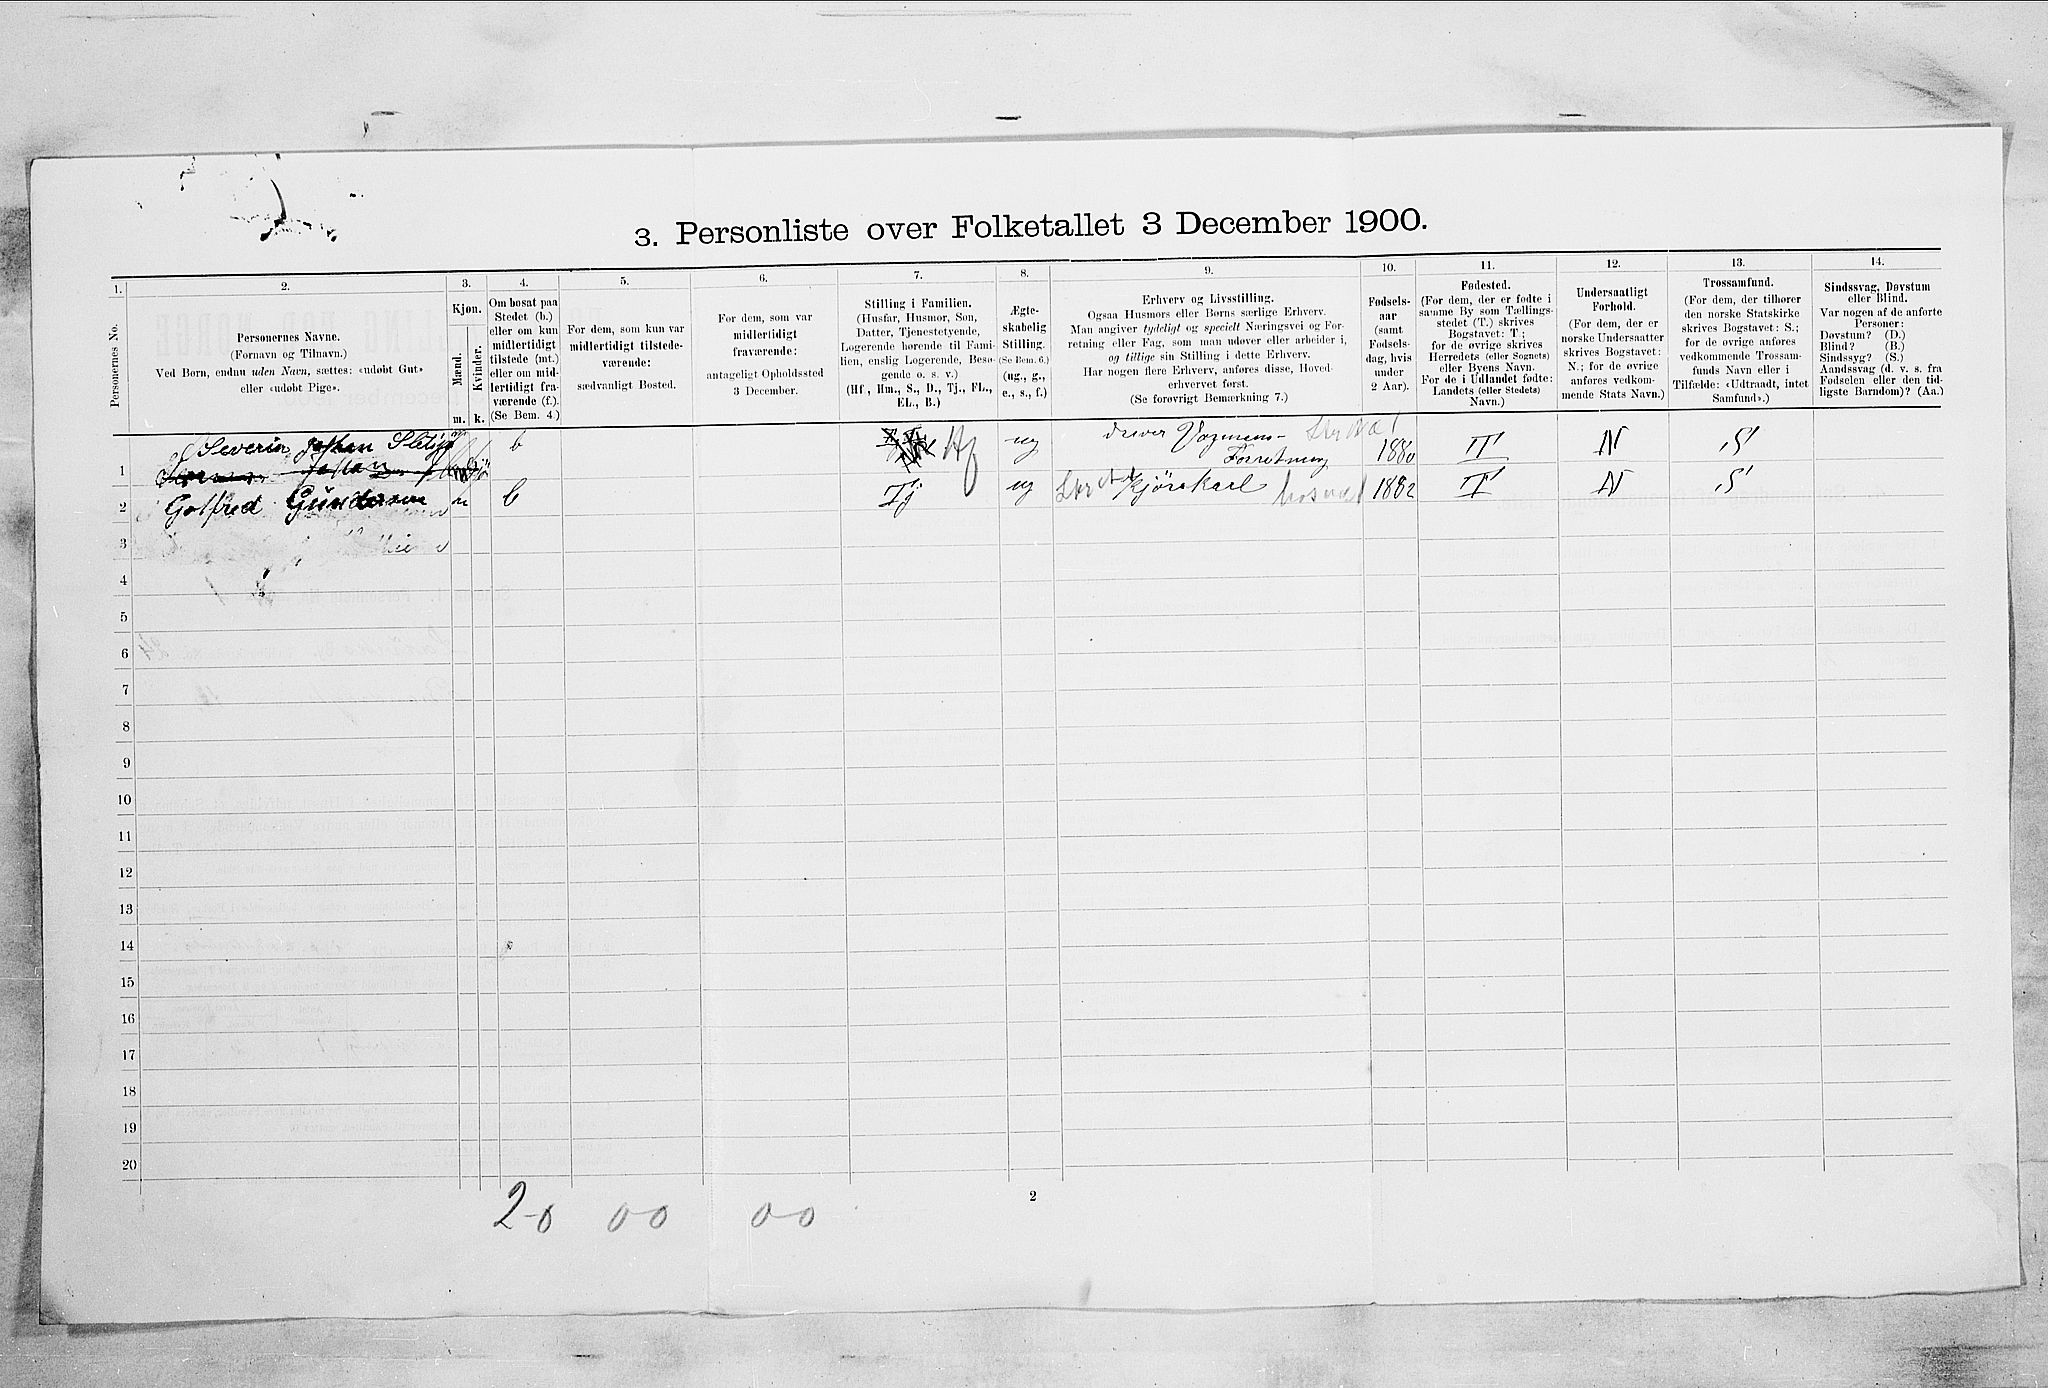 3. Personliste over Folketallet 3 December 1900.
1.
2.
3.
4.
5.
6.
7.
8.
9.
10.
11.
12.
13.
14.
Personernes No.
Personernes Navne.
(Fornavn og Tilnavn.)
Ved Børn, endnu uden Navn, sættes: «udøbt Gut»
eller «udøbt Pige».
Kjøn.
Mænd.
Kvinder.
m.
k.
Om bosat paa
Stedet (b.)
eller om kun
midlertidigt
tilstede (mt.)
eller om mid-
lertidigt fra-
værende (f.).
(Se Bem. 4.)
For dem, som kun var
midlertidigt tilstede-
værende:
sædvanligt Bosted.
For dem, som var
midlertidigt
fraværende:
antageligt Opholdssted
3 December.
Stilling i Familien.
(Husfar, Husmor, Søn,
Datter, Tjenestetyende,
Logerende hørende til Fami-
lien, enslig Logerende, Besø-
gende o. s. v.)
(Hf., Hm., S., D., Tj., FL.,
EL., B.)
Ægte-
skabelig
Stilling.
(Se Bem. 6.)
(ug., g.,
e., s., f.)
Erhverv og Livsstilling.
Ogsaa Husmors eller Børns særlige Erhverv.
Man angiver tydeligt og specielt Næringsvei og For-
retning eller Fag, som man udøver eller arbeider i,
og tillige sin Stilling i dette Erhverv.
Har nogen flere Erhverv, anføres disse, Hoved-
erhvervet først.
(Se forøvrigt Bemærkning 7.)
Fødsels-
aar
(samt
Fødsels-
dag, hvis
under
2 Aar).
Fødested.
(For dem, der er fødte i
samme By som Tællings-
stedet (T.) skrives
Bogstavet: T;
for de øvrige skrives
Herredets (eller Sognets)
eller Byens Navn.
For de i Udlandet fødte:
Landets (eller Stedets)
Navn.)
Undersaatligt
Forhold.
(For dem, der er
norske Undersaatter
skrives Bogstavet:
N.; for de øvrige
anføres vedkom-
mende Stats Navn.)
Trossamfund.
(For dem, der tilhører
den norske Statskirke
skrives Bogstavet: S.;
for de øvrige anføres
vedkommende Trossam-
funds Navn eller i
Tilfælde: «Udtraadt, intet
Samfund».)
Sindssvag, Døvstum
eller Blind.
Var nogen af de anførte
Personer:
Døvstum? (D.)
Blind? (B.)
Sindssyg? (S.)
Aandssvag (d. v. s. fra
Fødselen eller den tid-
ligste Barndom)? (Aa.)
1 Severin Johan b Hf ug driver Vognmans- Forretning 1880 T N S
2 Gotfred Gundersen m b Tj ug Kjørekarl 1882 T N S
3
4
5
6
7
8
9
10
11
12
13
14
15
16
17
18
19
20
2-0 0-0 0-0
2